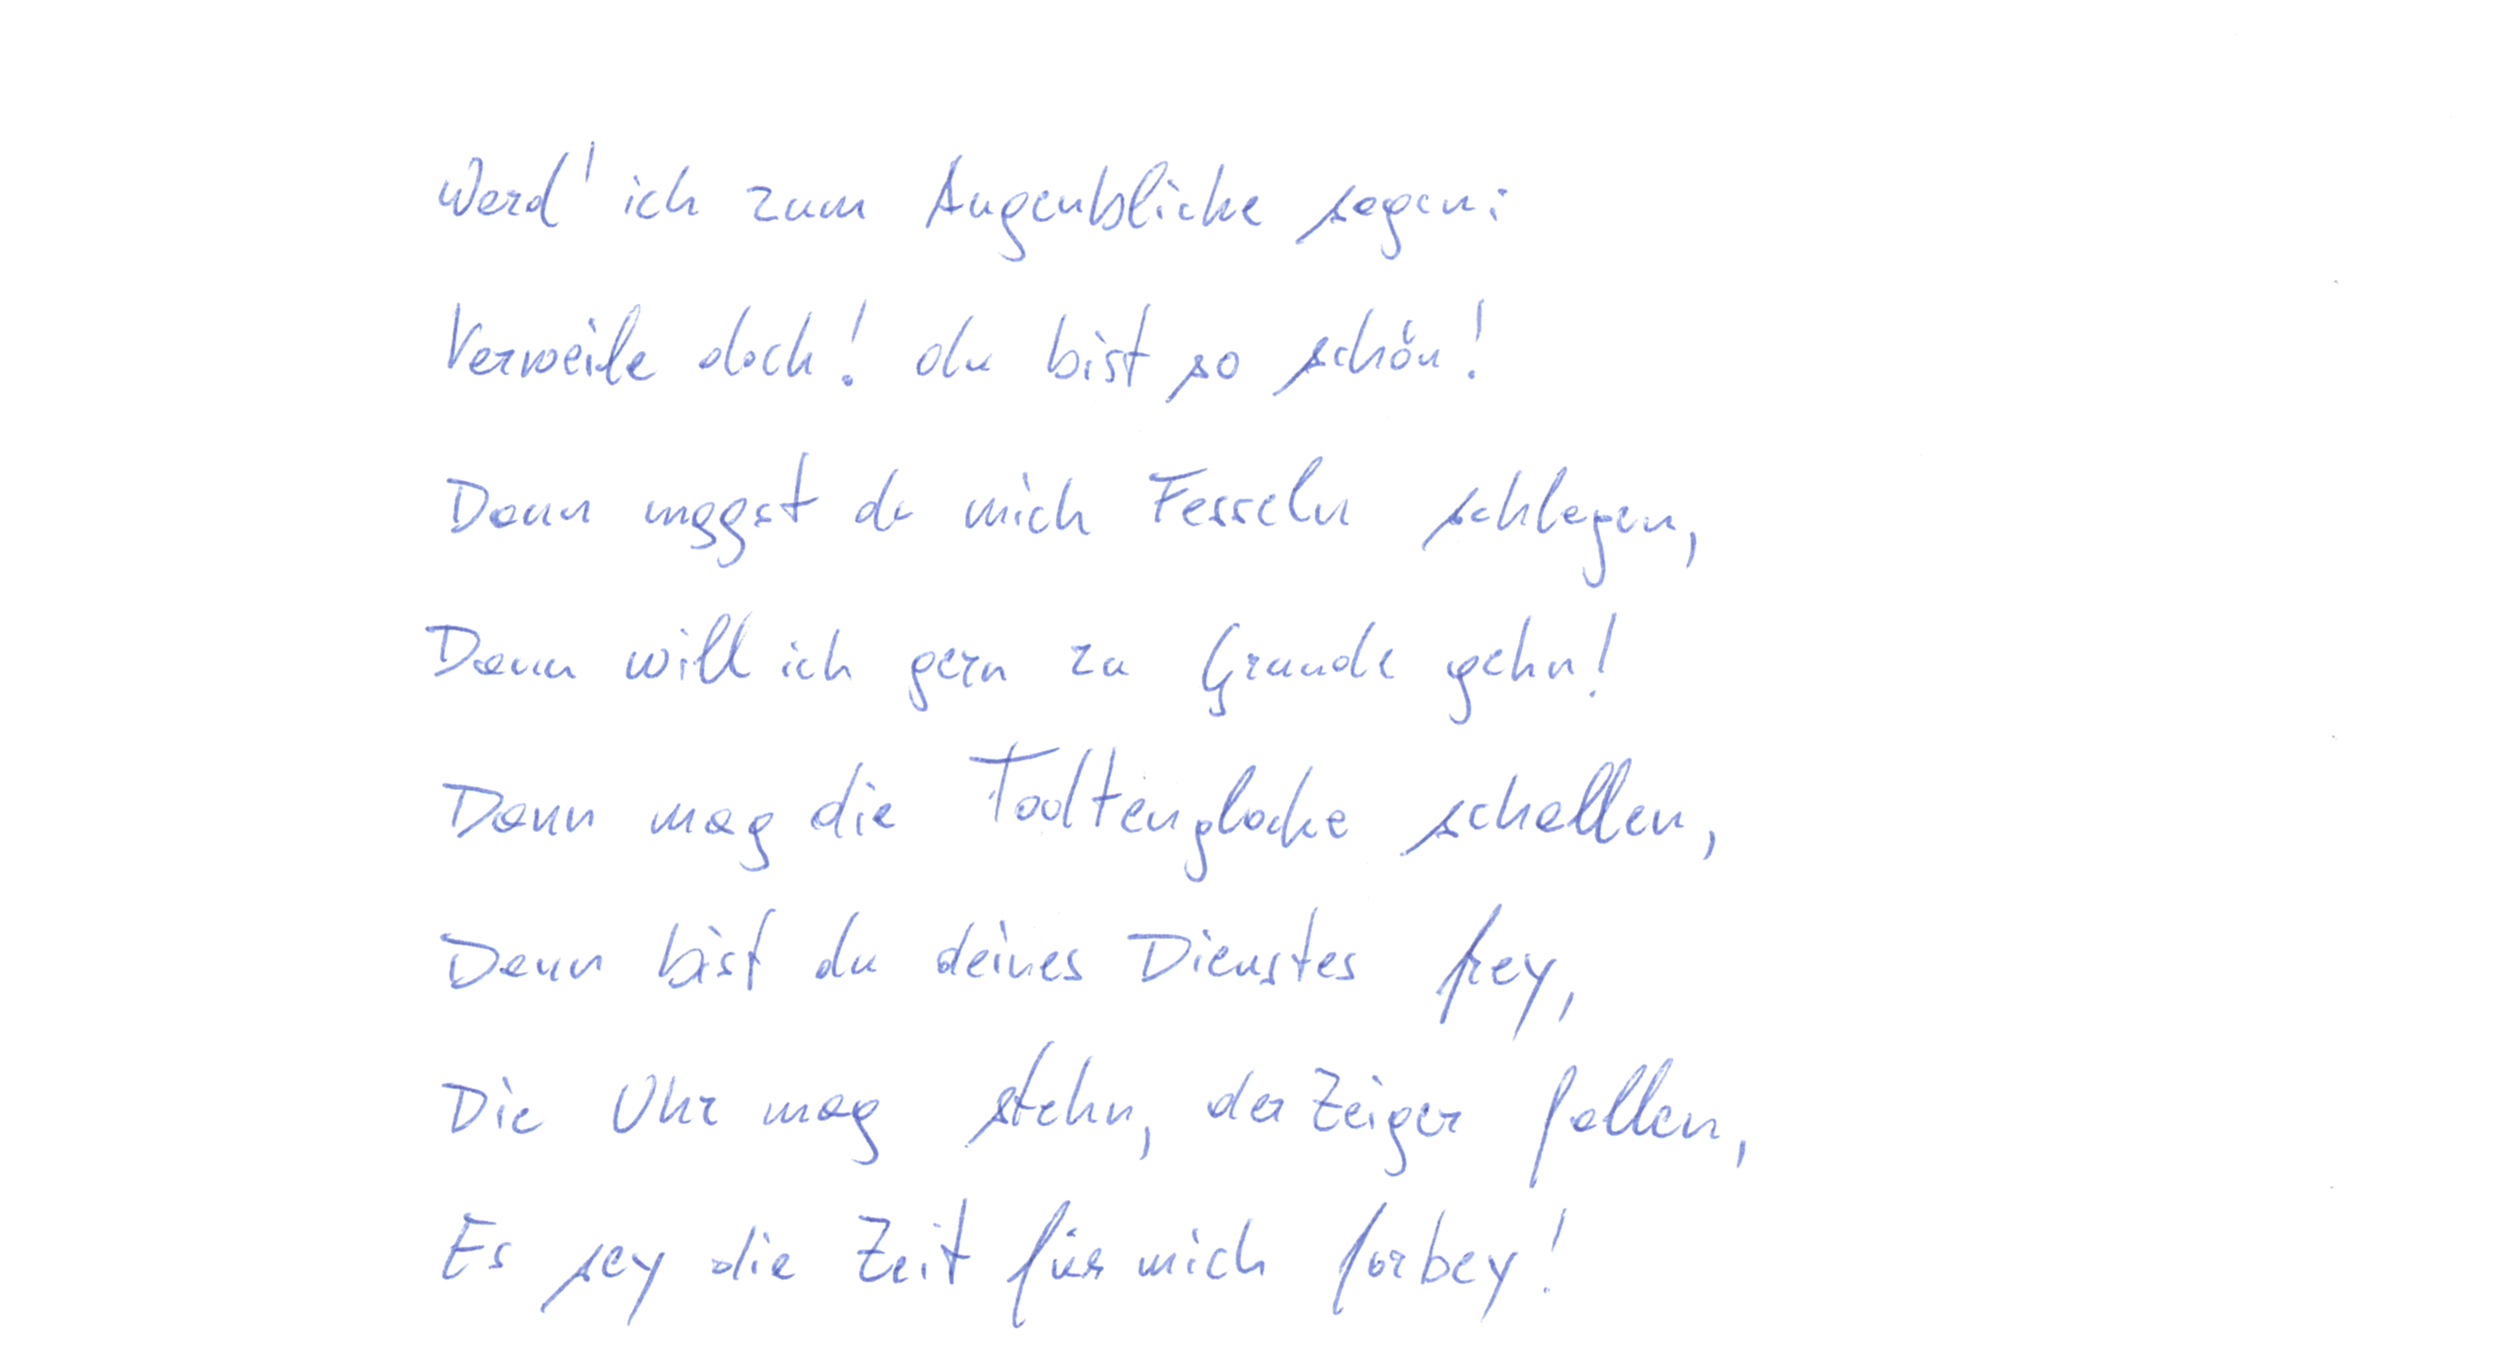 Werd' ich zum Augenblicke sagen:
Verweile doch! du bist so schön!
Dann magst du mich Fesseln schlagen,
Dann will ich gern zu Grunde gehn!
Dann mag die Todtenglocke schallen,
Dann bist du deines Dienstes frey,
Die Uhr mag stehn, der Zeiger fallen,
Es sey die Zeit für mich forbey!